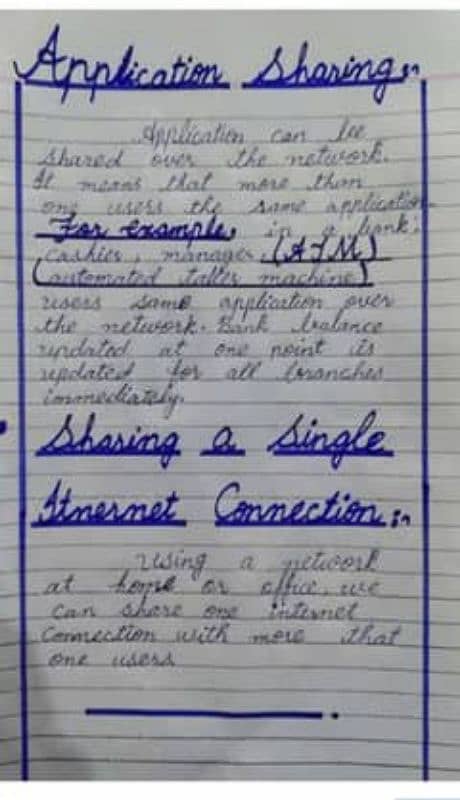 Application Sharing:-
Application can be
shared over the network.
It means that more than
one users the same application
For example, in a bank:
cashier, manager, (ATM)
(automated taller machine)
users same application over
the network. Bank balance
updated at one point its
updated for all branches
immediately.
Sharing a Single
Itnernet Connection:-
Using a network
at home or office, we
can share one internet
Connection with more that
one users